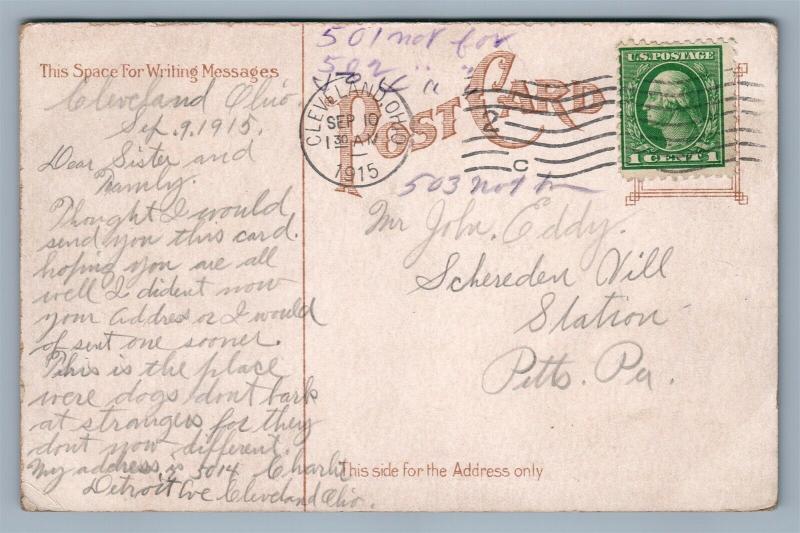 This Space For Writing Messages
Cleveland Ohio.
Sep. 9. 1915.
Dear Sister and
Family.
Thought I would
send you this card.
hoping you are all
well I dident now
your addres or I would
of sent one sooner.
This is the place
were dogs dont bark
at strangers for they
dont now different.
My address is 5014 Charlie
Detroit Ave Cleveland Ohio.
501 not for
502 " "
503 not
POST CARD
CLEVELAND, OHIO
SEP 10
1 30 AM
1915
U.S. POSTAGE
1 CENT 1
Mr John. Eddy.
Schereden Vill
Station
Pitts. Pa.
This side for the Address only